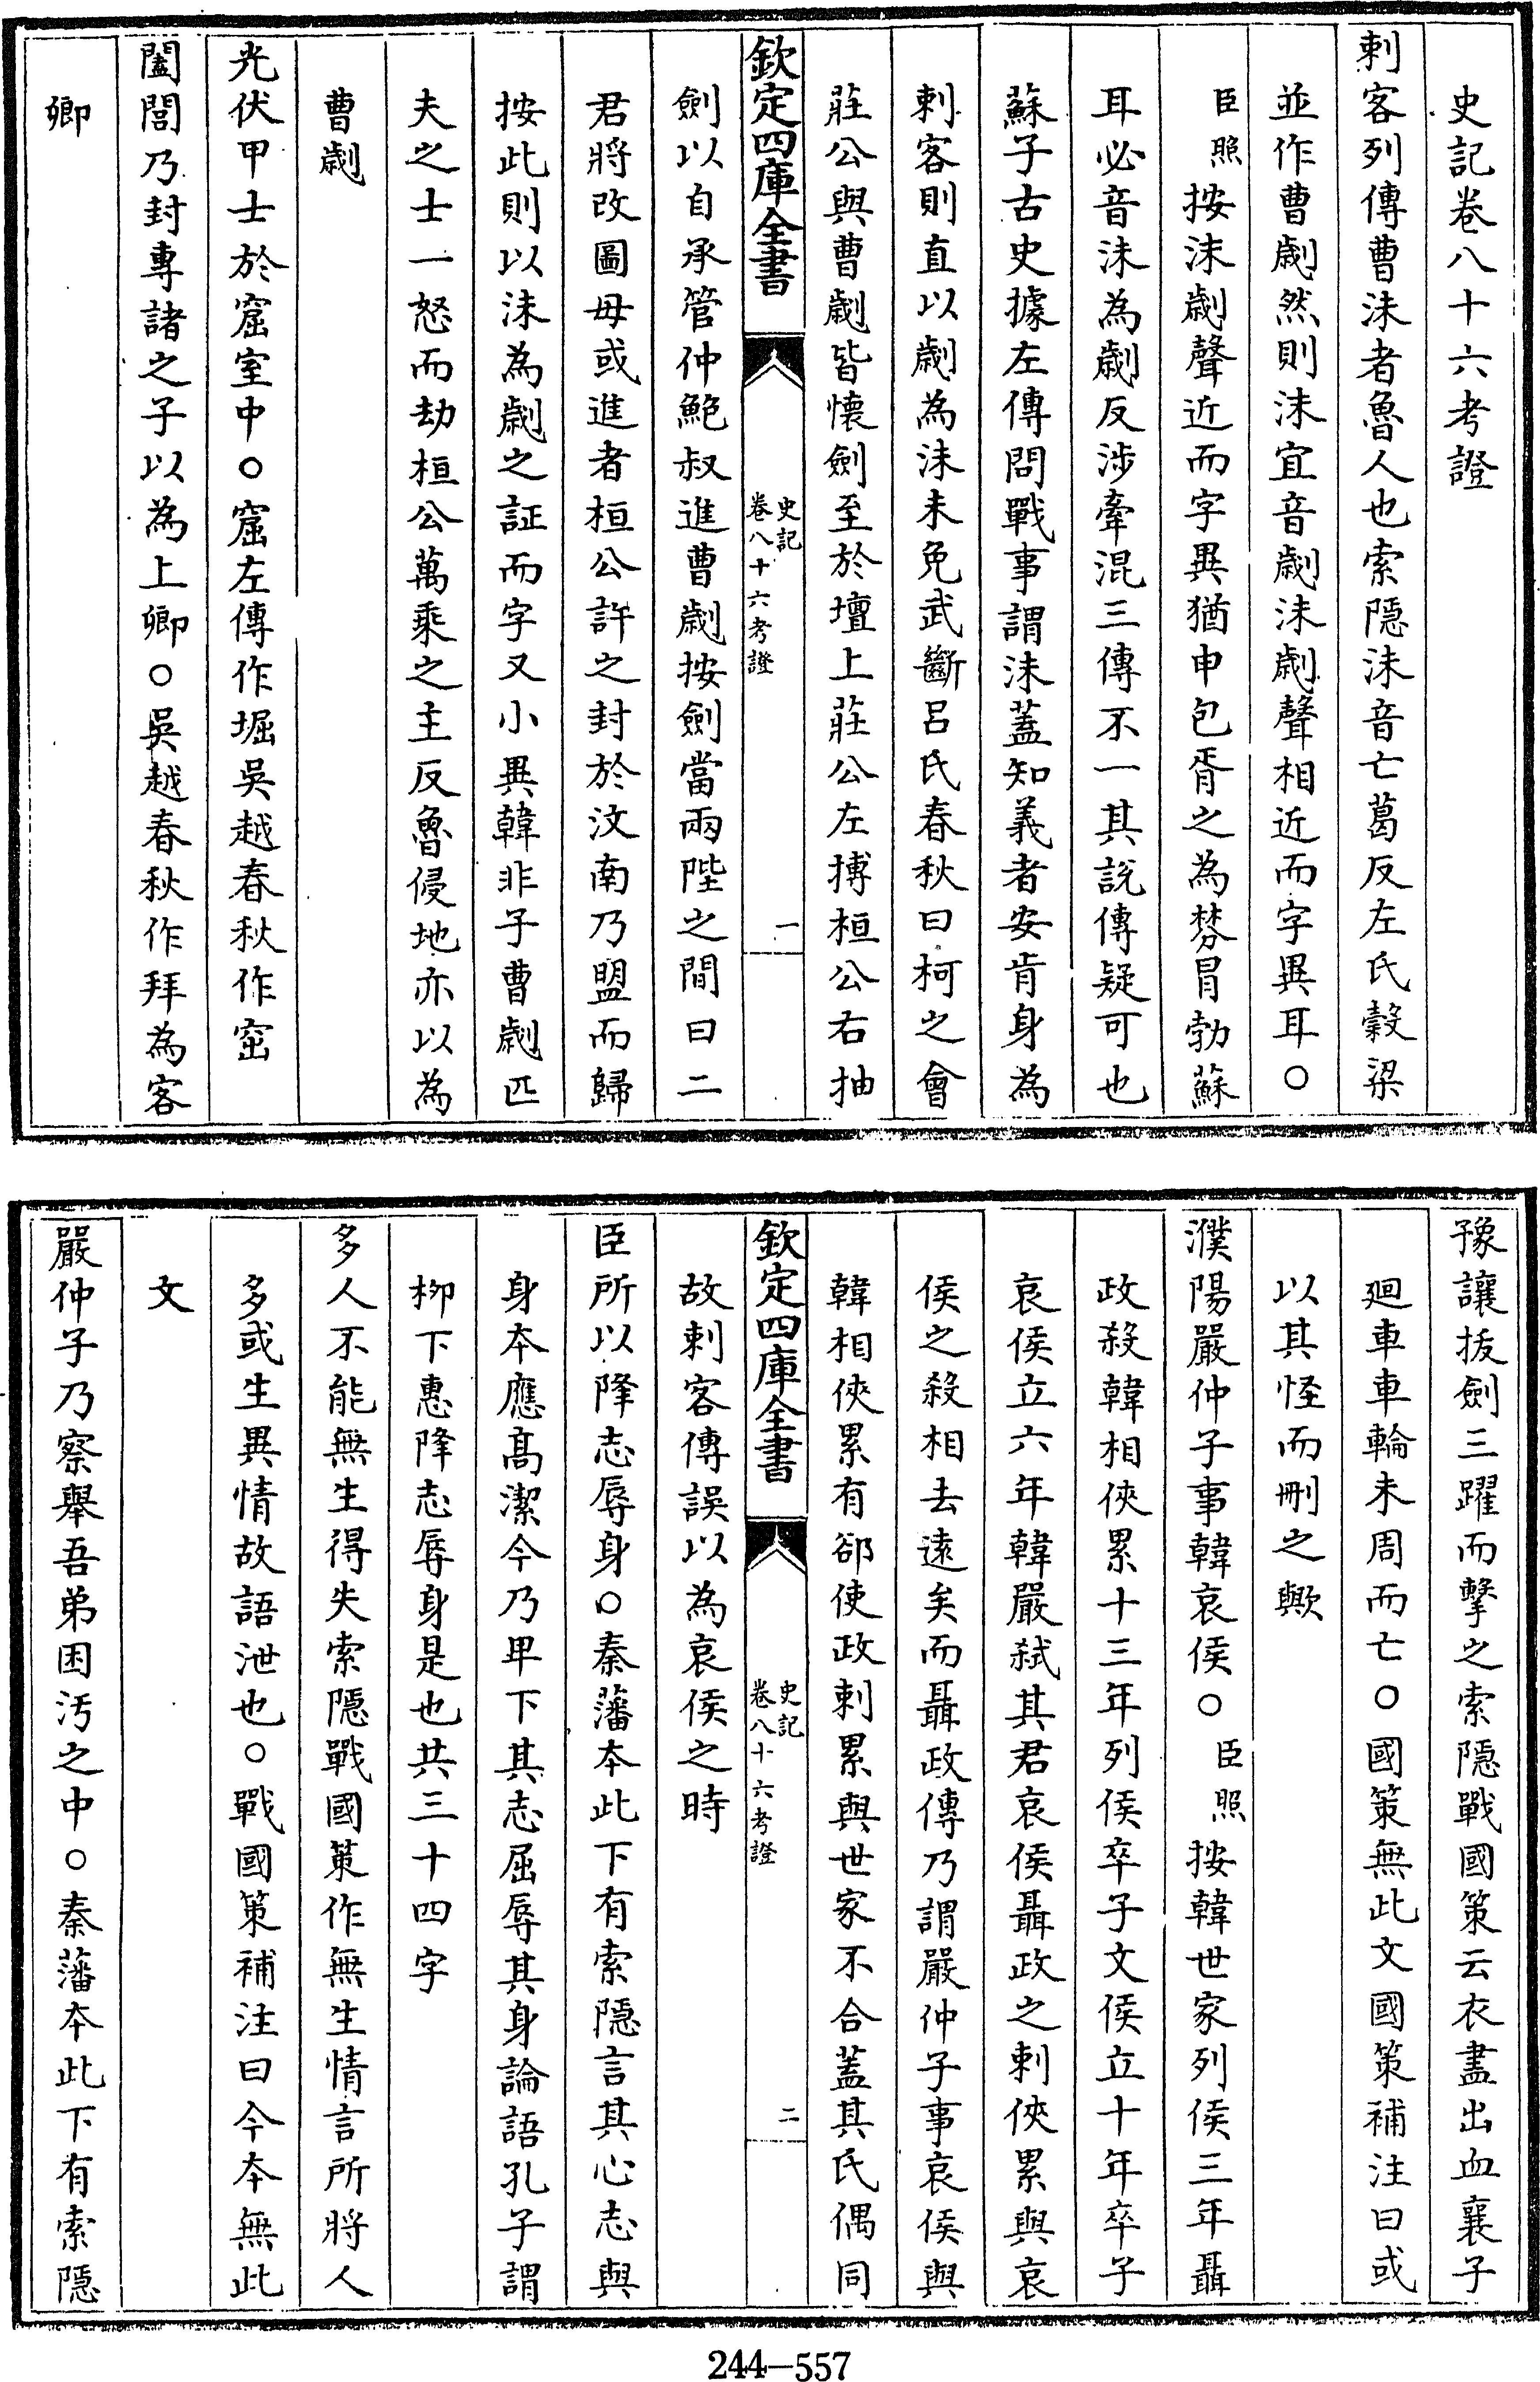 史記卷八十六考證
刺客列傳曹沬者魯人也索隱沬音亡葛反左氏穀梁
並作曹劌然則沬宜音劌沬劌聲相近而字異耳○
臣照按沬劌聲近而字異猶申包胥之為棼冒勃蘇
耳必音沬為劌反涉牽混三傳不一其說傳疑可也
蘇子古史據左傳問戰事謂沬蓋知義者安肯身為
刺客則直以劌為沬未免武斷呂氏春秋曰柯之會
莊公與曹劌皆懷劍至於壇上莊公左搏桓公右抽
欽定四庫全書
史記
卷八十六考證
一
劍以自承管仲鮑叔進曹劌按劍當兩陛之間曰二
君將改圖毋或進者桓公許之封於汶南乃盟而歸
按此則以沬為劌之証而字又小異韓非子曹劌匹
夫之士一怒而劫桓公萬乘之主反魯侵地亦以為
曹劌
光伏甲士於窟室中○窟左傳作堀吳越春秋作窋
闔閭乃封專諸之子以為上卿○吳越春秋作拜為客
卿
豫讓拔劍三躍而擊之索隱戰國策云衣盡出血襄子
廻車車輪未周而亡○國策無此文國策補注曰或
以其怪而刪之歟
濮陽嚴仲子事韓哀侯○臣照按韓世家列侯三年聶
政殺韓相俠累十三年列侯卒子文侯立十年卒子
哀侯立六年韓嚴弒其君哀侯聶政之刺俠累與哀
侯之殺相去遠矣而聶政傳乃謂嚴仲子事哀侯與
韓相俠累有郤使政刺累與世家不合蓋其氏偶同
欽定四庫全書
史記
卷八十六考證
二
故刺客傳誤以為哀侯之時
臣所以降志辱身○秦藩本此下有索隱言其心志與
身本應髙潔今乃卑下其志屈辱其身論語孔子謂
栁下惠降志辱身是也共三十四字
多人不能無生得失索隱戰國策作無生情言所將人
多或生異情故語泄也○戰國策補注曰今本無此
文
嚴仲子乃察舉吾弟困汚之中○秦藩本此下有索隱
244—557